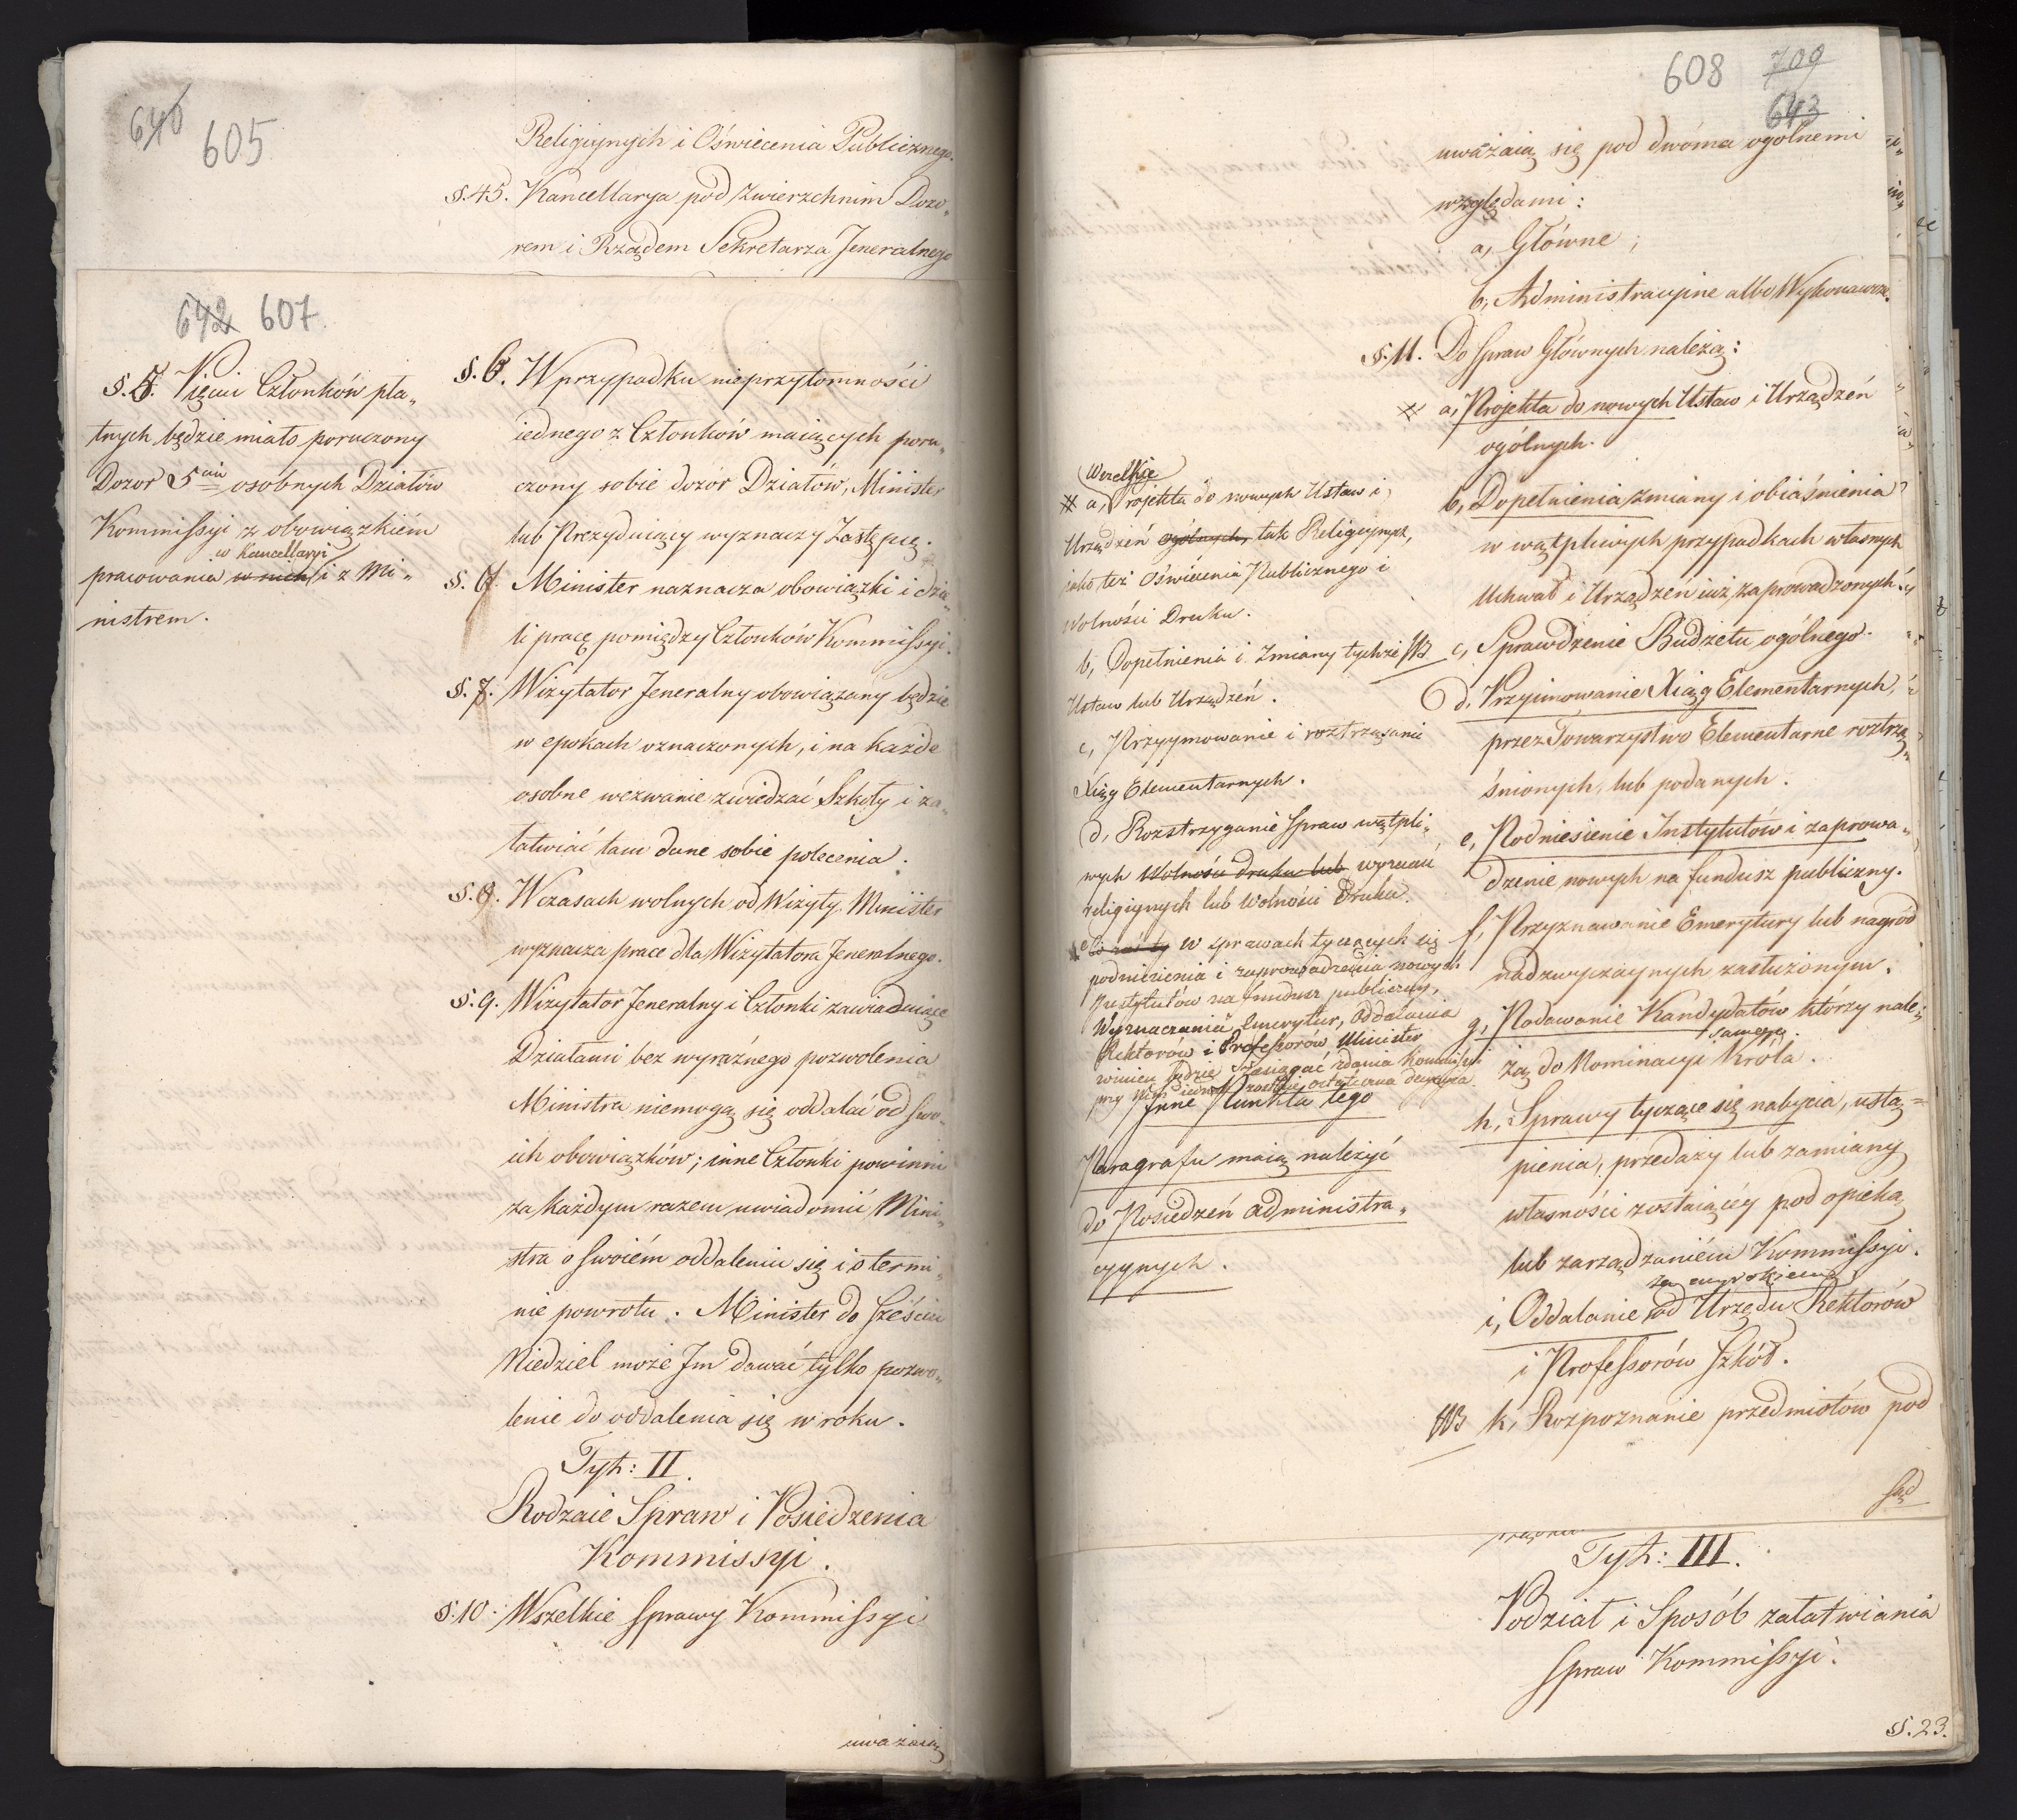 640 605
Religiynych i Oświecenia Publicznego.
§.45. Kancellarya pod Zwierzchnim Dozo„
rem i Rządem Sekretarza Jeneralnego
642 607.
§.5. Pięciu Członków pła„
tnych będzie miało poruczony
Dozor 5ciu osobnych Działów
Kommissyi z obowiązkiém
w Kancellaryi
pracowania w nich i z Mi„
nistrem.
§.6. W przypadku nieprzytomności
iednego z Członków maiących poru„
czony sobie dozór Działów, Minister
lub Prezyduiący wyznaczy Zastępcę.
§. 7. Minister naznacza obowiązki i dzie„
li pracę pomiędzy Członków Kommissyi.
§. 7. Wizytator Jeneralny obowiązany będzie
w epokach oznaczonych, i na każde
osobne wezwanie zwiedzać Szkoły i za„
łatwiać tam dane sobie polecenia.
§.8. W czasach wolnych od Wizyty, Minister
wyznacza prace dla Wizytatora Jeneralnego.
§.9. Wizytator Jeneralny i Członki zawiaduiące
Działami bez wyraźnego pozwolenia
Ministra niemogą się oddalać od swo„
ich obowiązków; inne Członki powinni
za każdym razem uwiadomić Mini„
stra o swoiém oddaleniu się i o termi„
nie powrotu. Minister do sześciu
Niedziel może Im dawać tylko pozwo„
lenie do oddalenia się w roku.
Tyt: II.
Rodzaie Spraw i Posiedzenia
Kommissyi.
§.10. Wszelkie sprawy Kommissyi
uważaią
608 709
643
uważaią się pod dwóma ogólnemi
względami:
a, Główne;
b, Administracyine albo Wykonawcze.
§.11. Do spraw Głównych należą:
a, Projekta do nowych Ustaw i Urządzeń
ogólnych.
b, Dopełnienia, zmiany i obiaśnienia
w wątpliwych przypadkach własnych
Uchwał i Urządzeń iuż zaprowadzonych.
c, Sprawdzenie Budżetu ogólnego.
d, Przyimowanie Xiąg Elementarnych,
przez Towarzystwo Elementarne roztrzą„
śnionych, lub podanych.
e, Podniesienie Instytutów i zaprowa„
dzenie nowych na fundusz publiczny.
f, Przyznawanie Emerytury lub nagród
nadzwyczaynych zasłużonym.
g, Podawanie Kandydatów którzy nale„
samego.
żą do Nominacyi Króla.
h, Sprawy tyczące się nabycia, ustą=
pienia, przedaży lub zamiany
własności zostaiącéy pod opieką
lub zarządzaniém Kommissyi.
za wyrokiem
i, Oddalanie od Urzędu Rektorów
i Professorów Szkół.
NB k, Rozpoznanie przedmiotów pod
sąd
Wszelkie
a, Projekta do nowych Ustaw i
Urządzeń ogólnych, tak Religiynych,
jako też Oświecenia Publicznego i
Wolności Druku.
b, Dopełnienia i Zmiany tychże NB
Ustaw lub Urządzeń.
c, Przyymowanie i roztrząsanie
Xiąg Elementarnych.
d, Rozstrzyganie spraw wątpli„
wych Wolności druku lub wyznań
religiynych lub Wolności Druku.
w sprawach tyczących się
podniesienia i zaprowadzenia nowych
Instytutów na fundusz publiczny,
Wyznaczania Emerytur, Oddalania
Rektorów i Professorów Minister
winien będzie zasiągać zdania Kommissyi
przy nim iednak zostaie ostateczna decyzya.
Inne Punkta tego
Paragrafu maią należyć
do Posiedzeń administra„
cyynych.
Tyt: III.
Podział i Sposób załatwiania
spraw Kommissyi.
§§.23.